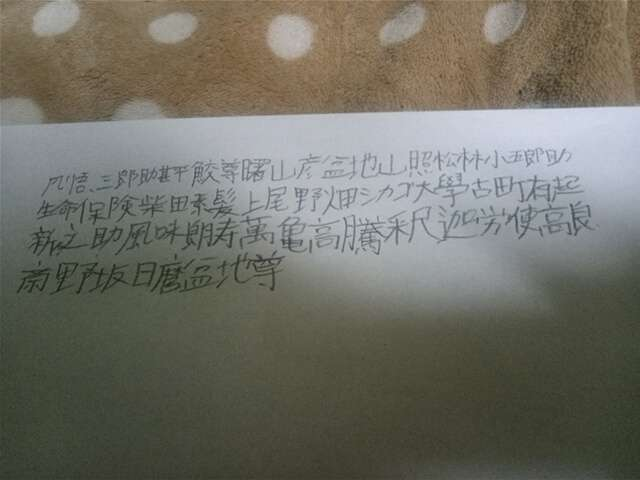 凡悟、三郎助甚平鮫尊曙山彦盆地山照松林小五郎助
生命保険柴田素髪上尾野畑シカゴ大學古町有起
新之助風味朗寿萬亀高騰釈迦労使高良
斎野坂日麿盆地尊